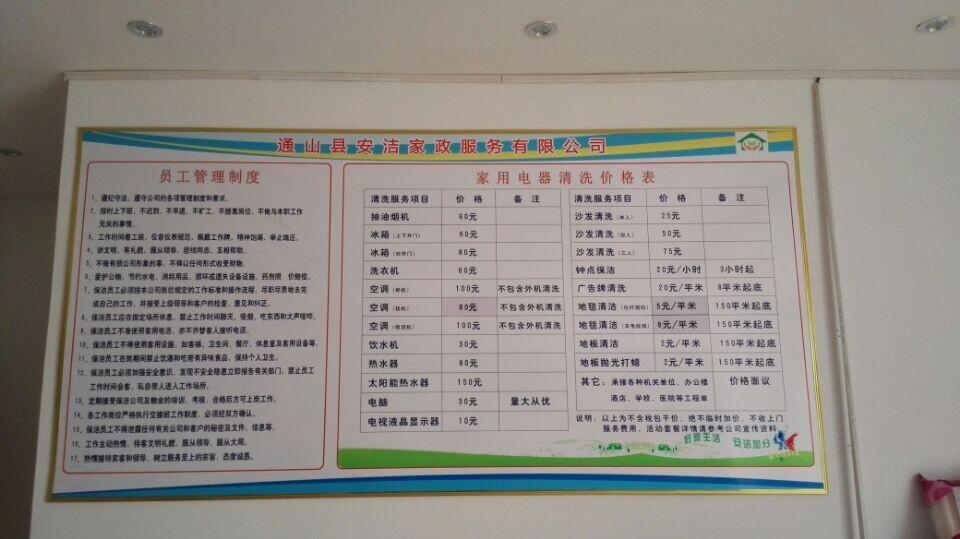 通山县安洁家政服务有限公司
员工管理制度
1、遵纪守法、遵守公司的各项管理制度和要求。
2、按时上下班，不迟到、不早退、不旷工、不擅离岗位，不做与本职工作
无关的事情。
3、工作时间着工装，仪容仪表规范，佩戴工作牌，精神饱满，举止端庄。
4、讲文明，有礼貌，服从领导，团结同志，互相帮助。
5、不做有损公司形象的事，不得以任何形式收受财物。
6、爱护公物，节约水电，消耗用品，损坏或遗失设备设施、药剂照价赔偿。
7、保洁员工必须按本公司岗位规定的工作标准和操作流程，尽职尽责地去完
成自己的工作，并接受上级领导和客户的检查，意见和纠正。
8、保洁员工应在指定场所休息，禁止工作时间聊天、吸烟、吃东西和大声喧哗。
9、保洁员工不准使用客用电话，亦不许替客人接听电话。
10、保洁员工不得使用客用设施，如客梯、卫生间、餐厅、休息室及客用设备等。
11、保洁员工在岗期间禁止饮酒和吃带有异味食品，保持个人卫生。
12、保洁员工必须加强安全意识，发现不安全隐患立即报告有关部门，禁止员工
工作时间会客，私自带人进入工作场所。
13、定期接受保洁公司及物业的培训，考核，合格后方可上岗工作。
14、各工作岗位严格执行交接班工作制度，必须经双方确认。
15、保洁员工不得泄露任何有关公司和客户的秘密及文件、信息等。
16、工作主动热情，待客文明礼貌，服从领导，服从大局。
17、热情接待宾客和领导，树立服务至上的宗旨，态度诚恳。
家用电器清洗价格表
清洗服务项目 价格 备注
抽油烟机 60元
冰箱（上下开门） 60元
冰箱（对开门） 80元
洗衣机 60元
空调（柜机） 100元 不包含外机清洗
空调（挂机） 80元 不包含外机清洗
空调（吸顶机） 100元 不包含外机清洗
饮水机 30元
热水器 80元
太阳能热水器 150元
电脑 30元 量大从优
电视液晶显示器 10元
清洗服务项目 价格 备注
沙发清洗（单人） 25元
沙发清洗（双人） 50元
沙发清洗（三人） 75元
钟点保洁 20元/小时 3小时起
广告牌清洗 20元/平米 8平米起底
地毯清洁（化纤腈纶） 5元/平米 150平米起底
地毯清洁（羊毛丝绒） 8元/平米 150平米起底
地板清洁 2元/平米 150平米起底
地板抛光打蜡 2元/平米 150平米起底
其它：承接各种机关单位、办公楼 价格面议
酒店、学校、医院等工程单
说明：以上为不含税包干价，绝不临时加价，不收上门
服务费用，活动套餐详情请参考公司宣传资料
低碳生活 安洁加分